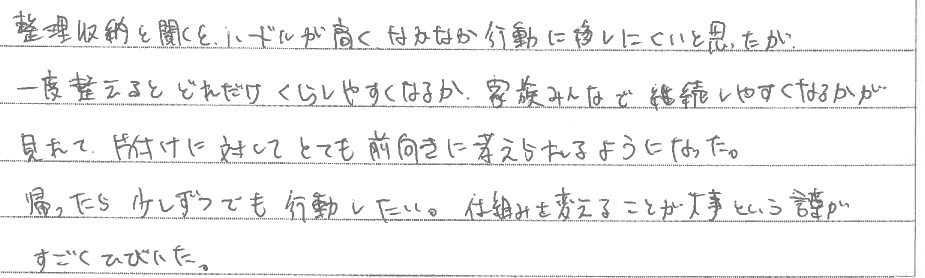 整理収納と聞くと、ハードルが高くなかなか行動に移しにくいと思ったが、
一度整えるとどれだけくらしやすくなるか、家族みんなで継続しやすくなるかが
見れて、片付けに対してとても前向きに考えられるようになった。
帰ったら少しずつでも行動したい。仕組みを変えることが大事という話が
すごくひびいた。